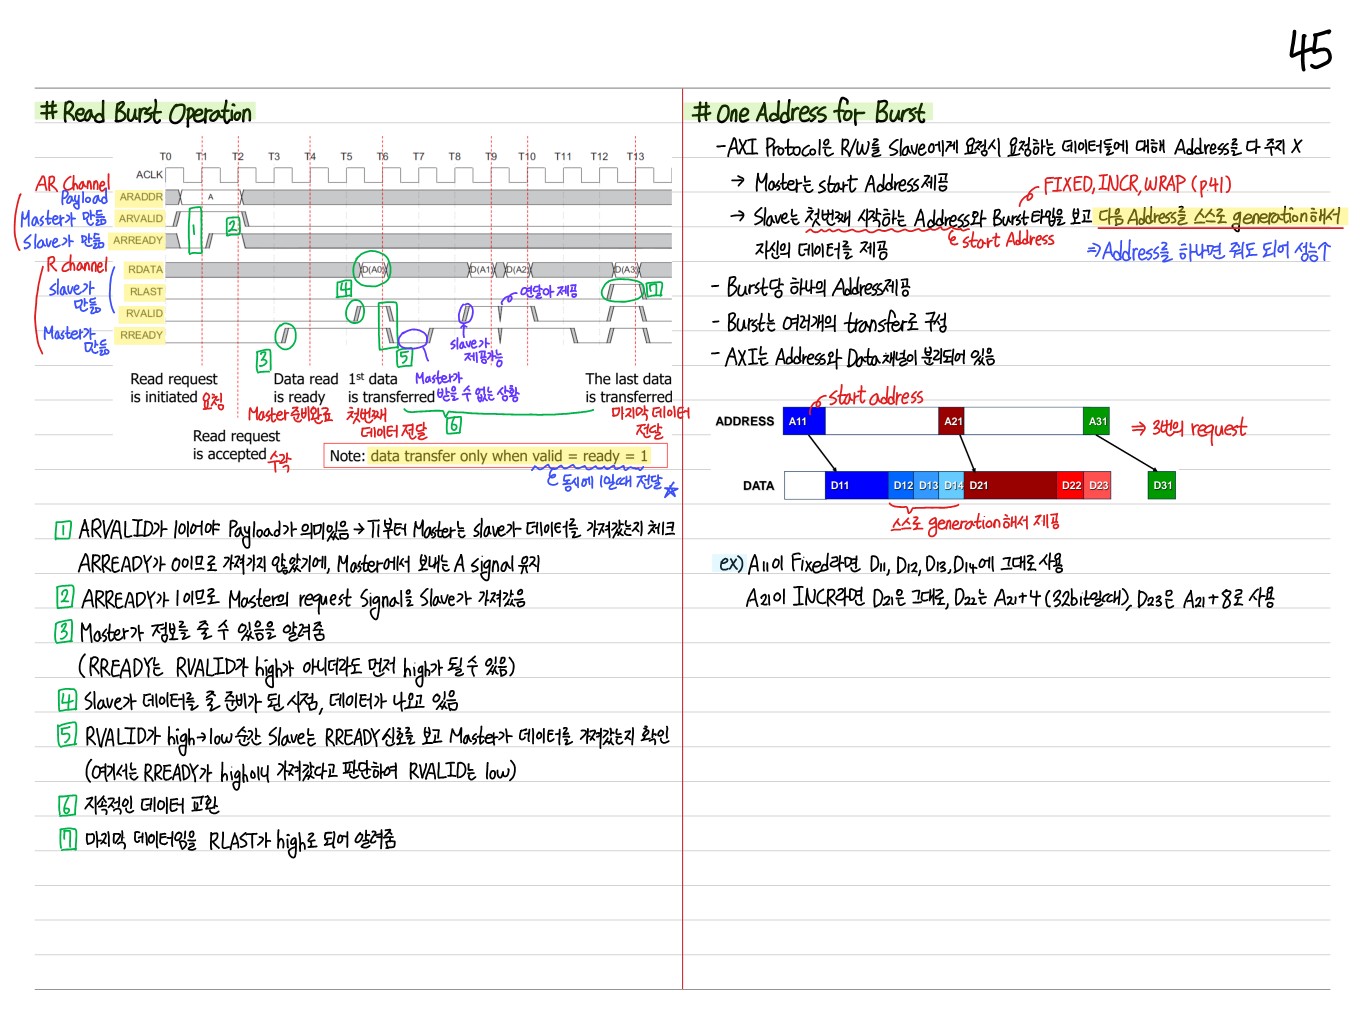 45
# Read Burst Operation
T0 T1 T2 T3 T4 T5 T6 T7 T8 T9 T10 T11 T12 T13
ACLK
AR Channel
Payload ARADDR A
Master가 만듦 ARVALID 1 2
Slave가 만듦 ARREADY
R channel RDATA D(A0) D(A1) D(A2) D(A3)
Slave가 만듦 RLAST 4 7
연달아 제공
RVALID
Master가 만듦 RREADY
slave가 제공가능
3 5
Read request is initiated 요청
Data read is ready Master 준비완료
1st data is transferred 첫번째 데이터 전달
Master가 받을 수 없는 상황
6
The last data is transferred 마지막 데이터 전달
Read request is accepted 수락
Note: data transfer only when valid = ready = 1
동시에 1일때 전달 ☆
1 ARVALID가 1이어야 Payload가 의미있음 → T1부터 Master는 slave가 데이터를 가져갔는지 체크
ARREADY가 0이므로 가져가지 않았기에, Master에서 보내는 A signal 유지
2 ARREADY가 1이므로 Master의 request Signal을 Slave가 가져갔음
3 Master가 정보를 줄 수 있음을 알려줌
(RREADY는 RVALID가 high가 아니더라도 먼저 high가 될 수 있음)
4 Slave가 데이터를 줄 준비가 된 시점, 데이터가 나오고 있음
5 RVALID가 high→low순간 Slave는 RREADY신호를 보고 Master가 데이터를 가져갔는지 확인
(여기서는 RREADY가 high이니 가져갔다고 판단하여 RVALID는 low)
6 지속적인 데이터 교환
7 마지막 데이터임을 RLAST가 high로 되어 알려줌
# One Address for Burst
- AXI Protocol은 R/W를 Slave에게 요청시 요청하는 데이터들에 대해 Address를 다 주지 X
→ Master는 start Address제공
FIXED, INCR, WRAP (p41)
→ Slave는 첫번째 시작하는 Address와 Burst타입을 보고 다음 Address를 스스로 generation해서
start Address
자신의 데이터를 제공
⇒ Address를 하나면 줘도 되어 성능↑
- Burst당 하나의 Address제공
- Burst는 여러개의 transfer로 구성
- AXI는 Address와 Data채널이 분리되어 있음
start address
ADDRESS A11 A21 A31 ⇒ 3번의 request
DATA D11 D12 D13 D14 D21 D22 D23 D31
스스로 generation해서 제공
ex) A11이 Fixed라면 D11, D12, D13, D14에 그대로 사용
A21이 INCR라면 D21은 그대로, D22는 A21+4 (32bit일때), D23은 A21+8로 사용